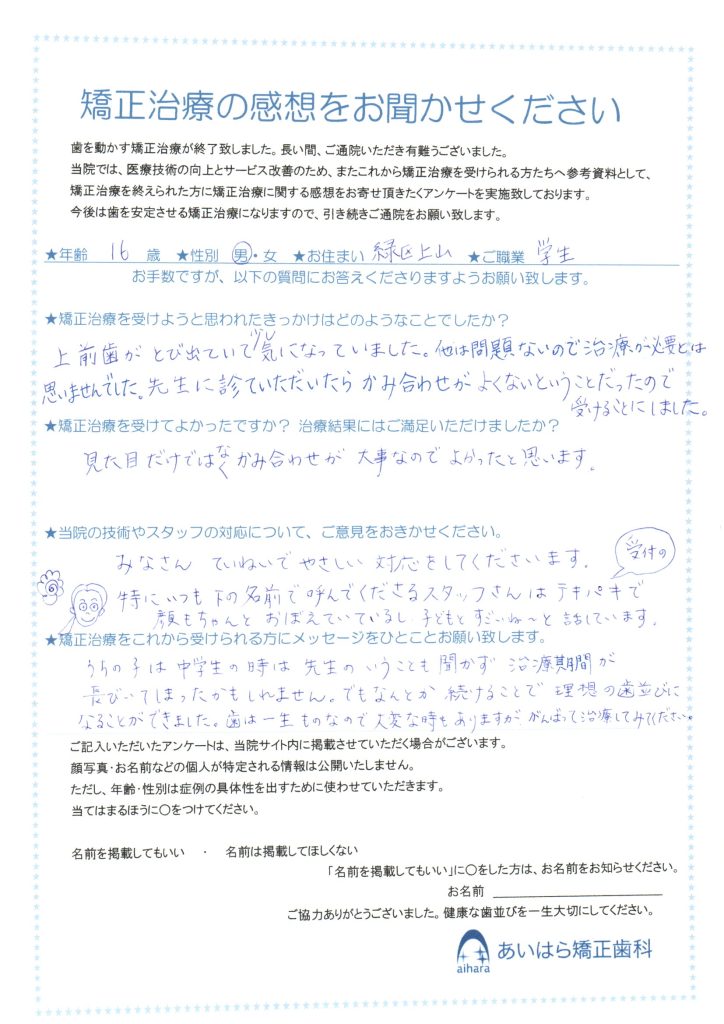 矯正治療の感想をお聞かせください
歯を動かす矯正治療が終了致しました。長い間、ご通院いただき有難うございました。
当院では、医療技術の向上とサービス改善のため、またこれから矯正治療を受けられる方たちへ参考資料として、
矯正治療を終えられた方に矯正治療に関する感想をお寄せ頂きたくアンケートを実施致しております。
今後は歯を安定させる矯正治療になりますので、引き続きご通院をお願い致します。
★年齢 16 歳 ★性別 男・女 ★お住まい 緑区上山 ★ご職業 学生
お手数ですが、以下の質問にお答えくださりますようお願い致します。
★矯正治療を受けようと思われたきっかけはどのようなことでしたか?
上前歯がとび出ていて少し気になっていました。他は問題ないので治療が必要とは
思いませんでした。先生に診ていただいたらかみ合わせがよくないということだったので
受けることにしました。
★矯正治療を受けてよかったですか? 治療結果にはご満足いただけましたか?
見た目だけではなくかみ合わせが大事なのでよかったと思います。
★当院の技術やスタッフの対応について、ご意見をおきかせください。
みなさんていねいでやさしい対応をしてくださいます。
受付の
特にいつも下の名前で呼んでくださるスタッフさんはテキパキで
顔もちゃんとおぼえていているし、子どもとすごいね〜と話しています。
★矯正治療をこれから受けられる方にメッセージをひとことお願い致します。
うちの子は中学生の時は先生のいうことも聞かず治療期間が
長びいてしまったかもしれません。でもなんとか続けることで理想の歯並びに
なることができました。歯は一生ものなので大変な時もありますががんばって治療してみてください。
ご記入いただいたアンケートは、当院サイト内に掲載させていただく場合がございます。
顔写真・お名前などの個人が特定される情報は公開いたしません。
ただし、年齢・性別は症例の具体性を出すために使わせていただきます。
当てはまるほうに〇をつけてください。
名前を掲載してもいい ・ 名前は掲載してほしくない
「名前を掲載してもいい」に〇をした方は、お名前をお知らせください。
お名前
ご協力ありがとうございました。健康な歯並びを一生大切にしてください。
aihara あいはら矯正歯科